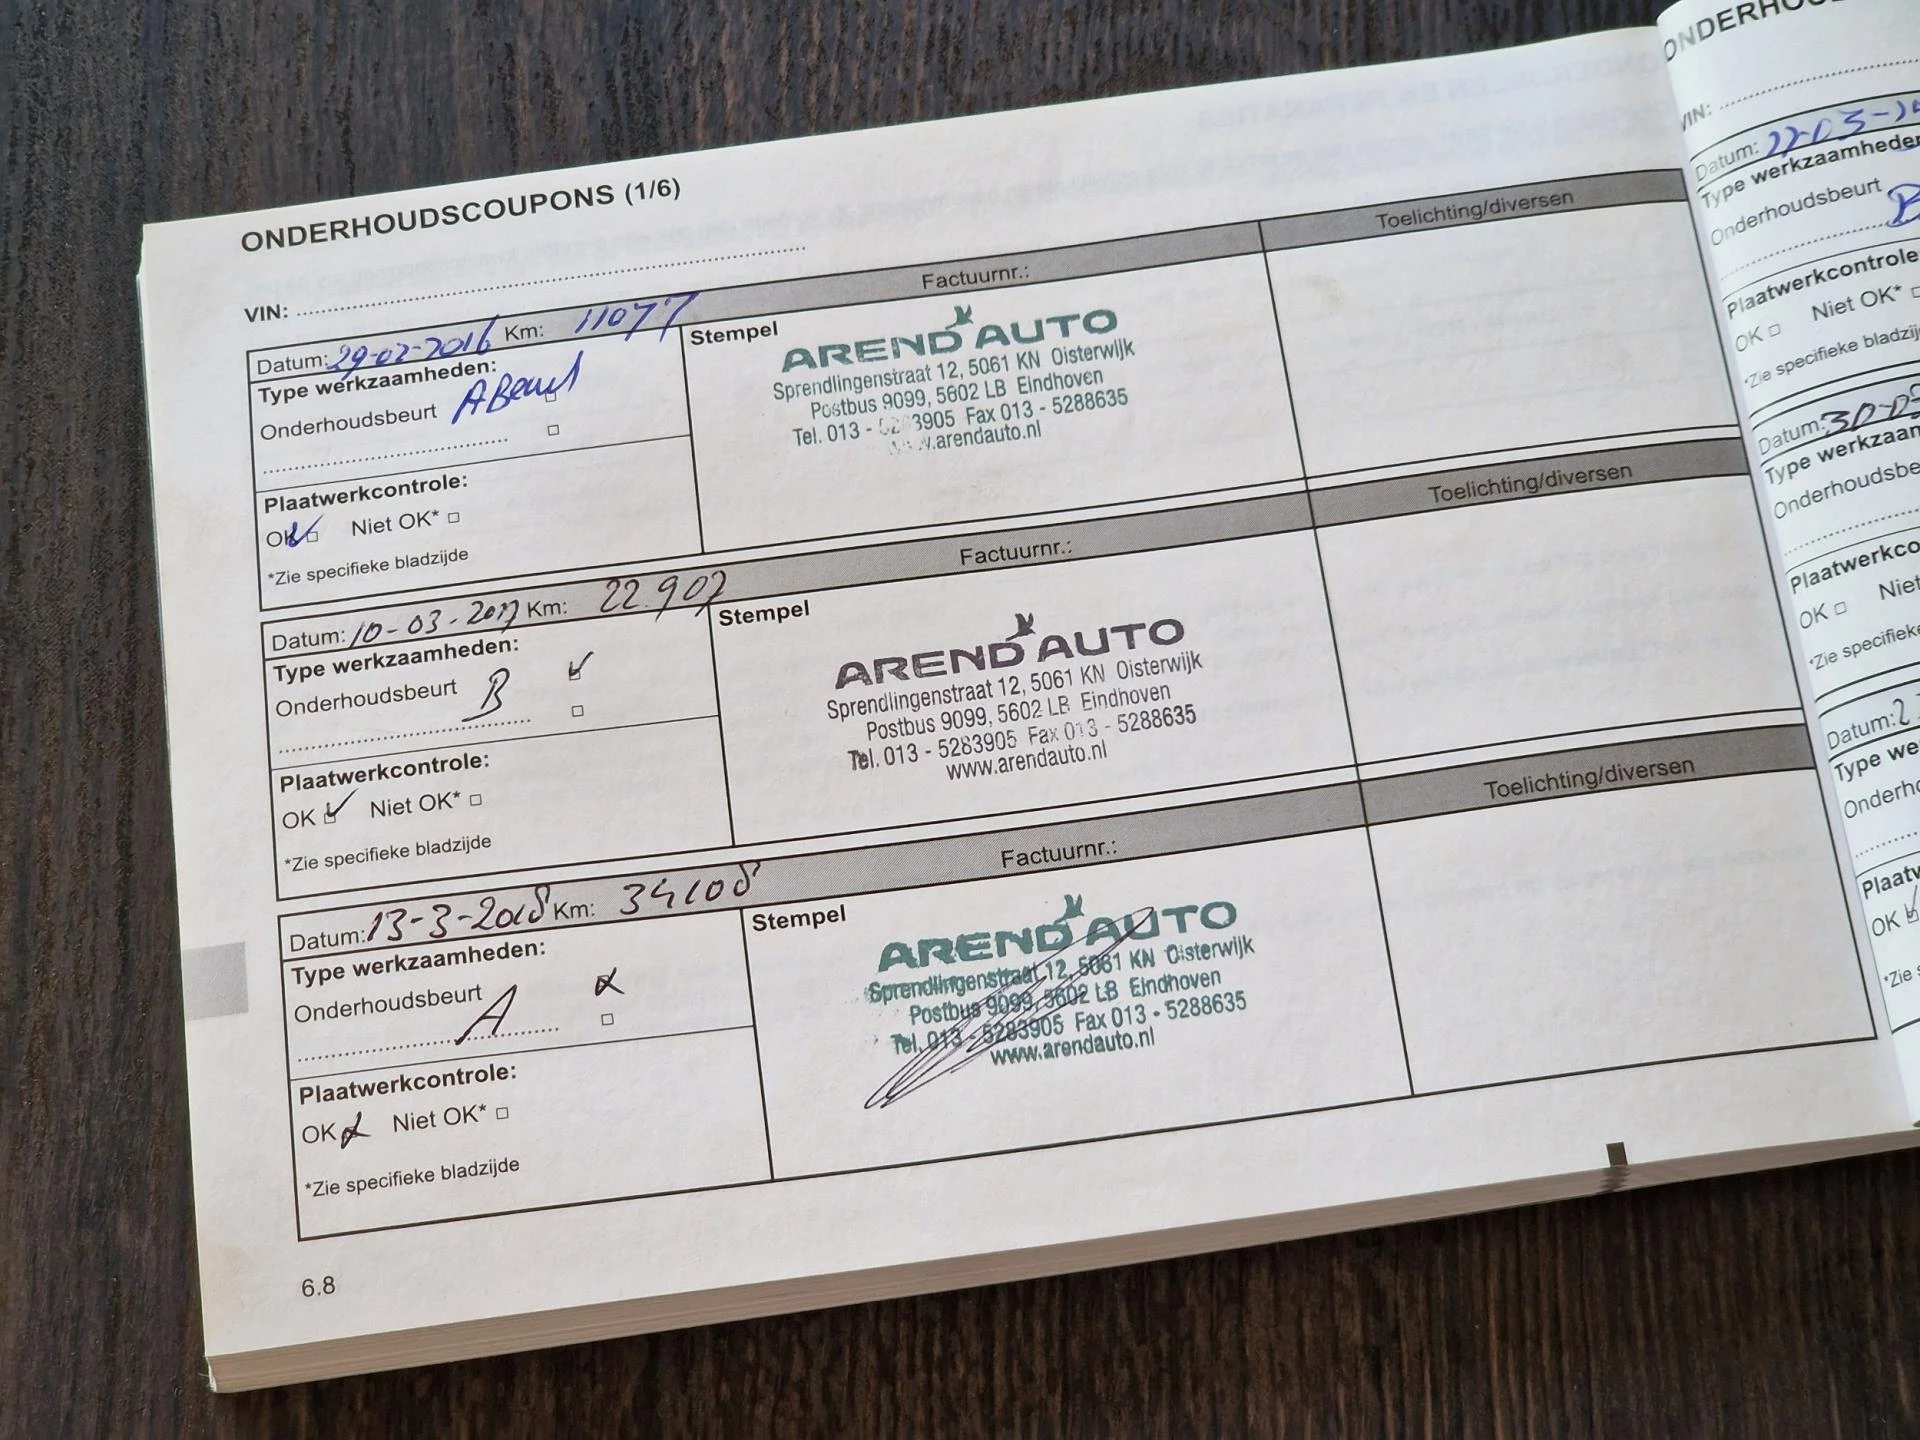 ONDERHOUDSCOUPONS (1/6)
VIN:
Datum: 29-02-2016 Km: 11077 Factuurnr.: Toelichting/diversen
Type werkzaamheden:
Onderhoudsbeurt A Beurt
Plaatwerkcontrole:
OK Niet OK*
*Zie specifieke bladzijde
Stempel
AREND AUTO
Sprendlingenstraat 12, 5061 KN Oisterwijk
Postbus 9099, 5602 LB Eindhoven
Tel. 013 - 5283905 Fax 013 - 5288635
www.arendauto.nl
Datum: 10-03-2017 Km: 22.907 Factuurnr.: Toelichting/diversen
Type werkzaamheden:
Onderhoudsbeurt B
Plaatwerkcontrole:
OK Niet OK*
*Zie specifieke bladzijde
Stempel
AREND AUTO
Sprendlingenstraat 12, 5061 KN Oisterwijk
Postbus 9099, 5602 LB Eindhoven
Tel. 013 - 5283905 Fax 013 - 5288635
www.arendauto.nl
Datum: 13-3-2018 Km: 34108 Factuurnr.: Toelichting/diversen
Type werkzaamheden:
Onderhoudsbeurt A
Plaatwerkcontrole:
OK Niet OK*
*Zie specifieke bladzijde
Stempel
AREND AUTO
Sprendlingenstraat 12, 5061 KN Oisterwijk
Postbus 9099, 5602 LB Eindhoven
Tel. 013 - 5283905 Fax 013 - 5288635
www.arendauto.nl
6.8
VIN:
Datum:
Type werkzaamheden
Onderhoudsbeurt
B
Plaatwerkcontrole
OK Niet OK*
*Zie specifieke
Datum:
Type
OK
*Zie specifieke
Datum:
Type
OK
*Zie